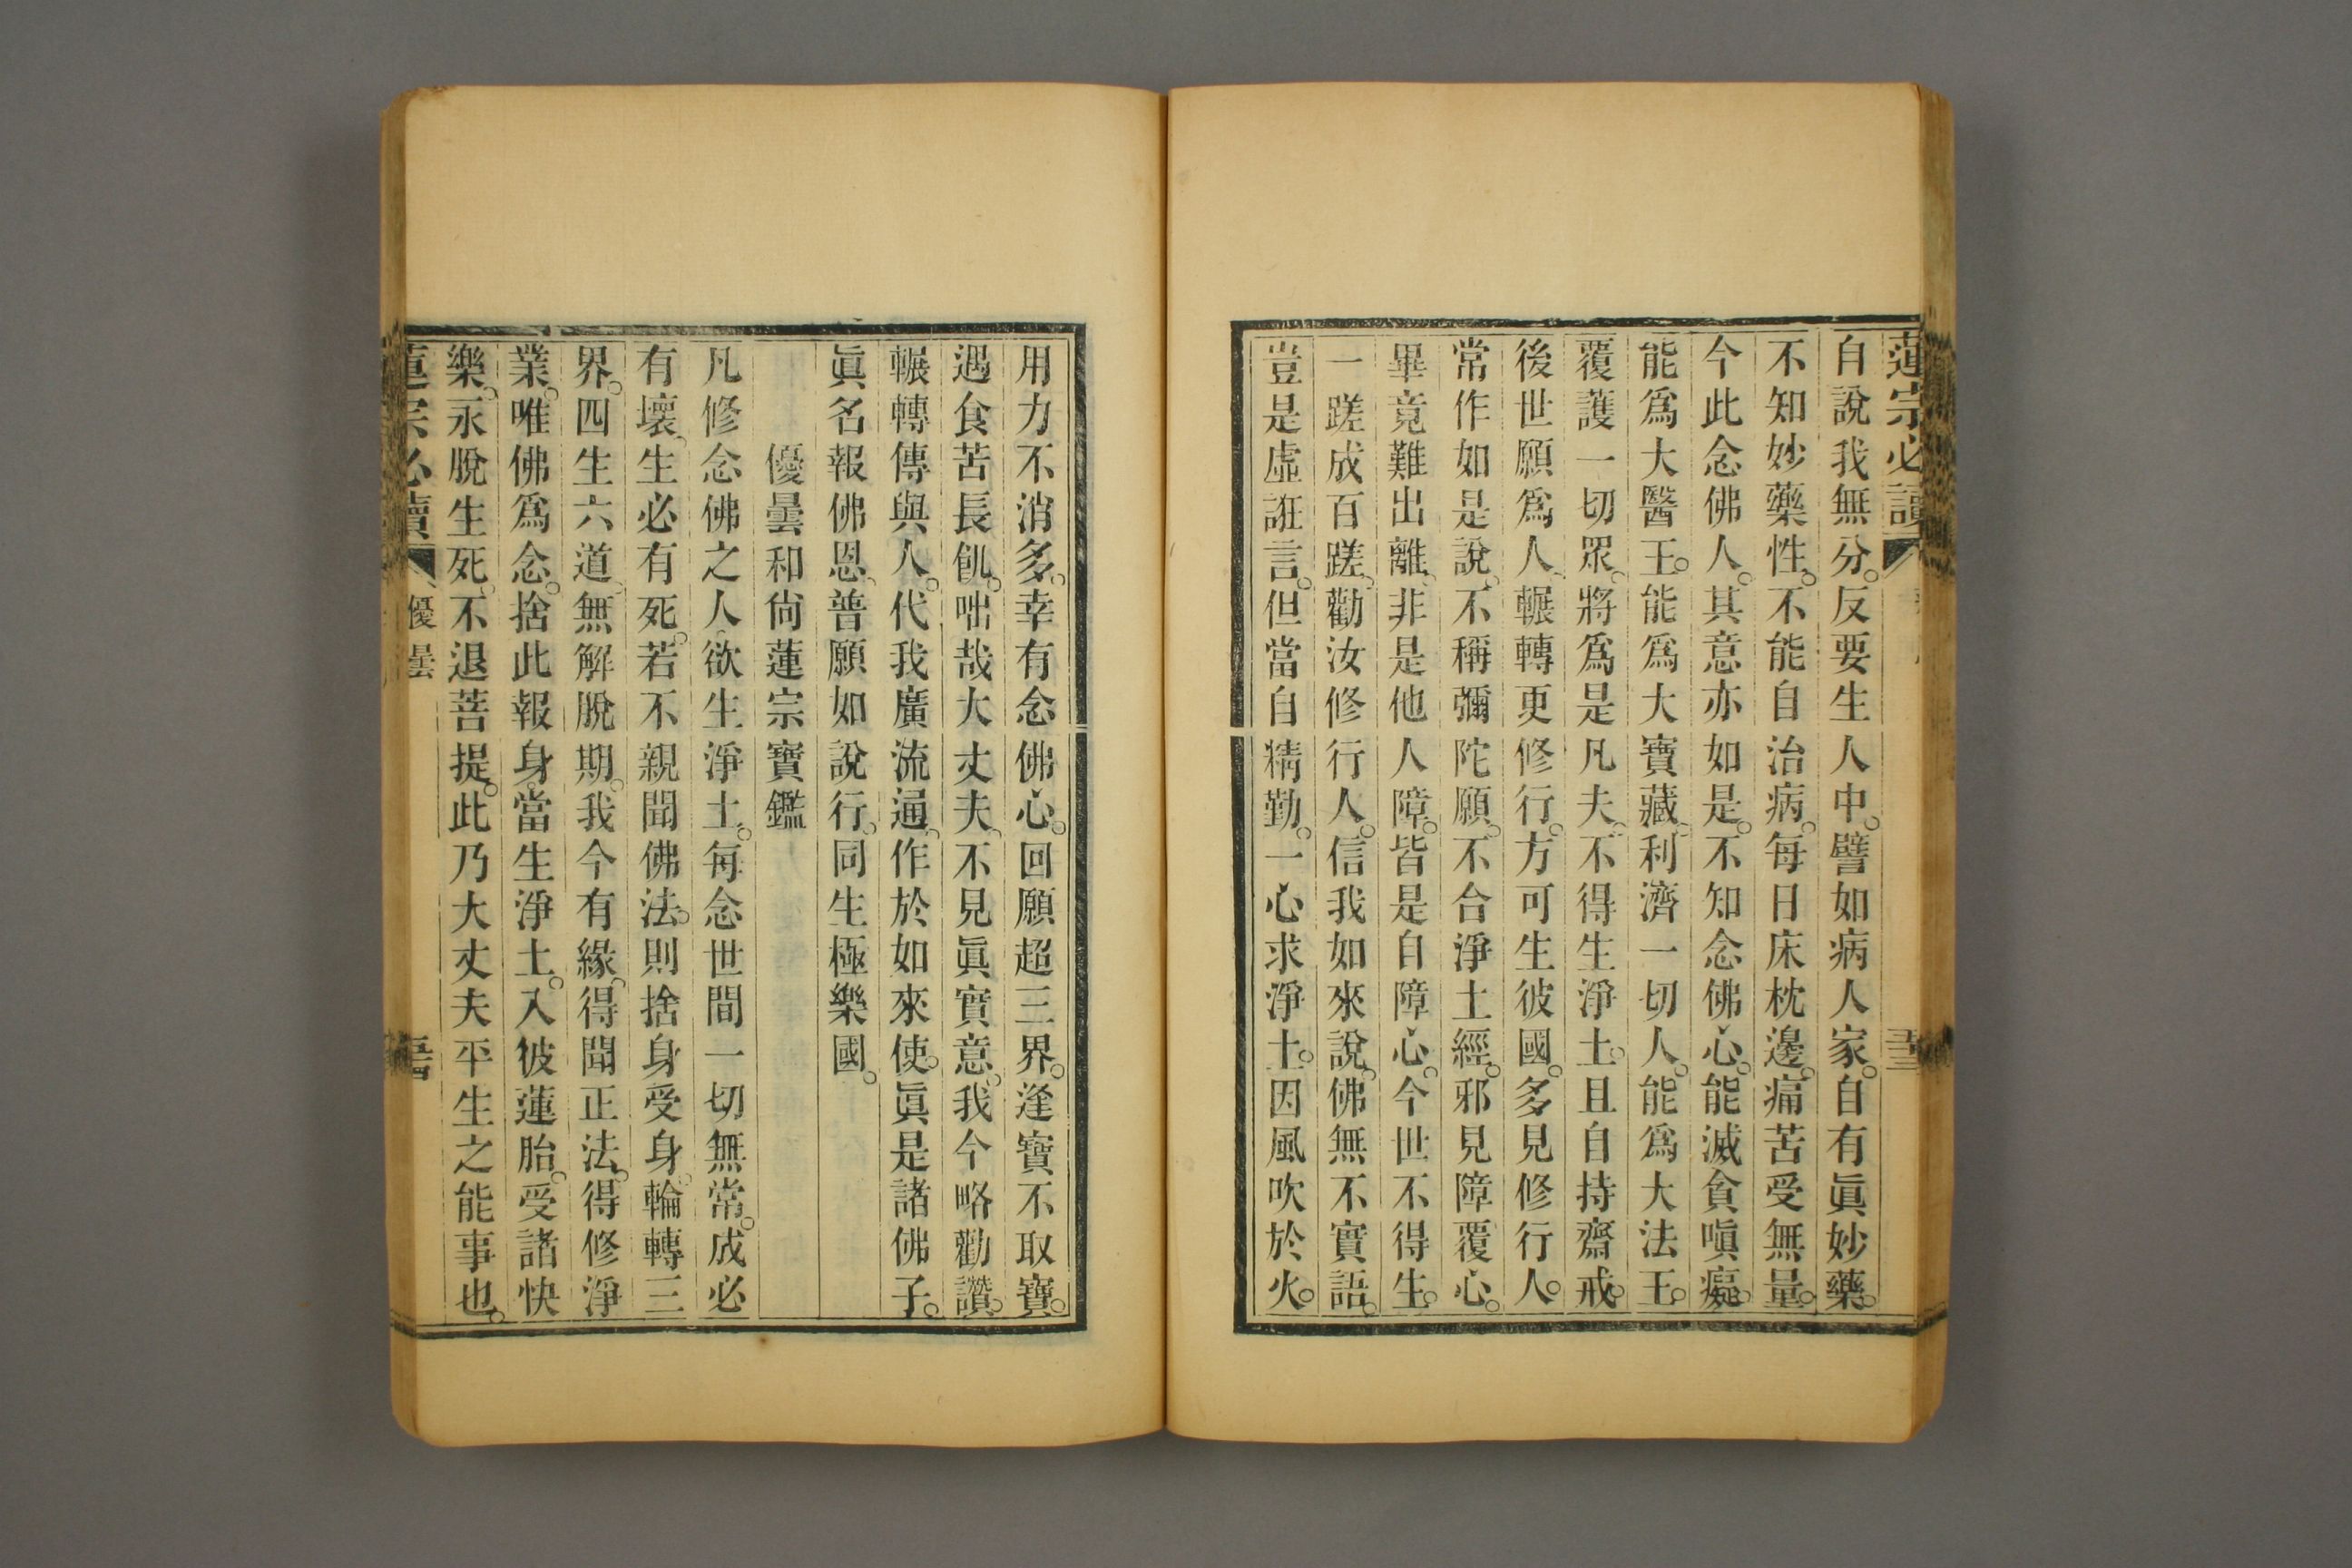 蓮宗必讀
自說我無分。反要生人中。譬如病人家。自有眞妙藥。
不知妙藥性。不能自治病。每日床枕邊。痛苦受無量。
今此念佛人。其意亦如是。不知念佛心。能滅貪嗔癡。
能爲大醫王。能爲大寶藏。利濟一切人。能爲大法王。
覆護一切眾。將爲是凡夫。不得生淨土。且自持齋戒。
後世願爲人。輾轉更修行。方可生彼國。多見修行人。
常作如是說。不稱彌陀願。不合淨土經。邪見障覆心。
畢竟難出離。非是他人障。皆是自障心。今世不得生。
一蹉成百蹉。勸汝修行人。信我如來說。佛無不實語。
豈是虛誑言。但當自精勤。一心求淨土。因風吹於火。
用力不消多。幸有念佛心。回願超三界。逢寶不取寶。
遇食苦長飢。咄哉大丈夫。不見眞實意。我今略勸讚。
輾轉傳與人。代我廣流通。作於如來使。眞是諸佛子。
眞名報佛恩。普願如說行。同生極樂國。
優曇和尙蓮宗寶鑑
凡修念佛之人。欲生淨土。每念世間一切無常。成必
有壞。生必有死。若不親聞佛法。則捨身受身。輪轉三
界。四生六道。無解脫期。我今有緣。得聞正法。得修淨
業。唯佛爲念。捨此報身。當生淨土。入彼蓮胎。受諸快
樂。永脫生死。不退菩提。此乃大丈夫平生之能事也。
蓮宗必讀 優曇